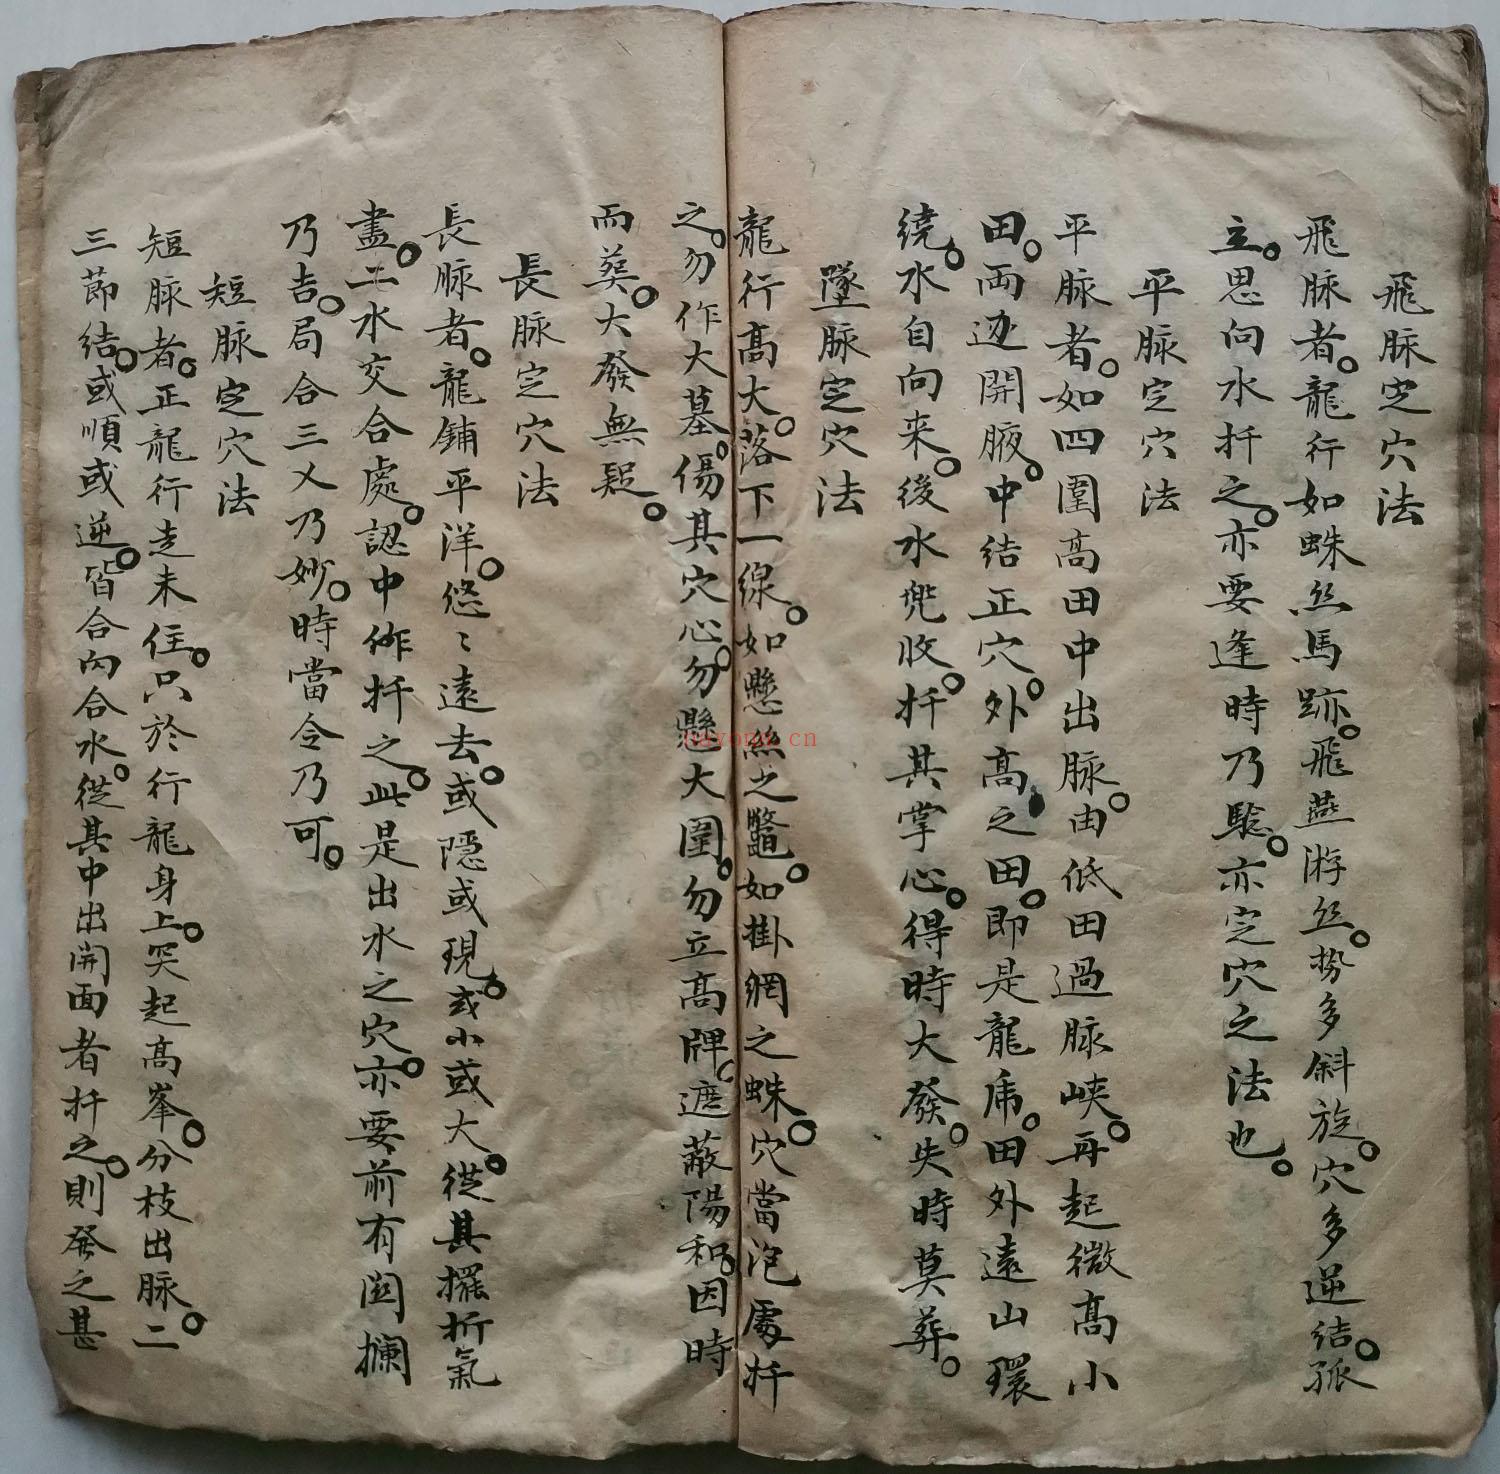 飛脉定穴法
飛脉者。龍行如蛛絲馬跡。飛燕游絲。勢多斜旋。穴多逆結。孤
立。思向水扦之。亦要逢時乃驗。亦定穴之法也。
平脉定穴法
平脉者。如四圍高田中出脉。由低田過脉峡。再起微高小
田。両邊開腋。中結正穴。外高之田。即是龍虎。田外遠山環
繞。水自向来。後水兜收。扦其掌心。得時大發。失時莫葬。
墜脉定穴法
龍行高大。落下一線。如懸絲之鼈。如掛網之蛛。穴當泡處扦
之。勿作大墓。傷其穴心。勿懸大圍。勿立高牌。遮蔽陽和。因時
而葬。大發無疑。
長脉定穴法
長脉者。龍鋪平洋。悠〻遠去。或隱或現。或小或大。從其擺折氣
盡。二水交合處。認中作扦之。此是出水之穴。亦要前有関攔
乃吉。局合三乂乃妙。時當令乃可。
短脉定穴法
短脉者。正龍行走未住。只於行龍身上。突起高峯。分枝出脉。二
三節結。或順或逆。皆合內合水。從其中出開面者扦之。則發之甚
nayona.cn